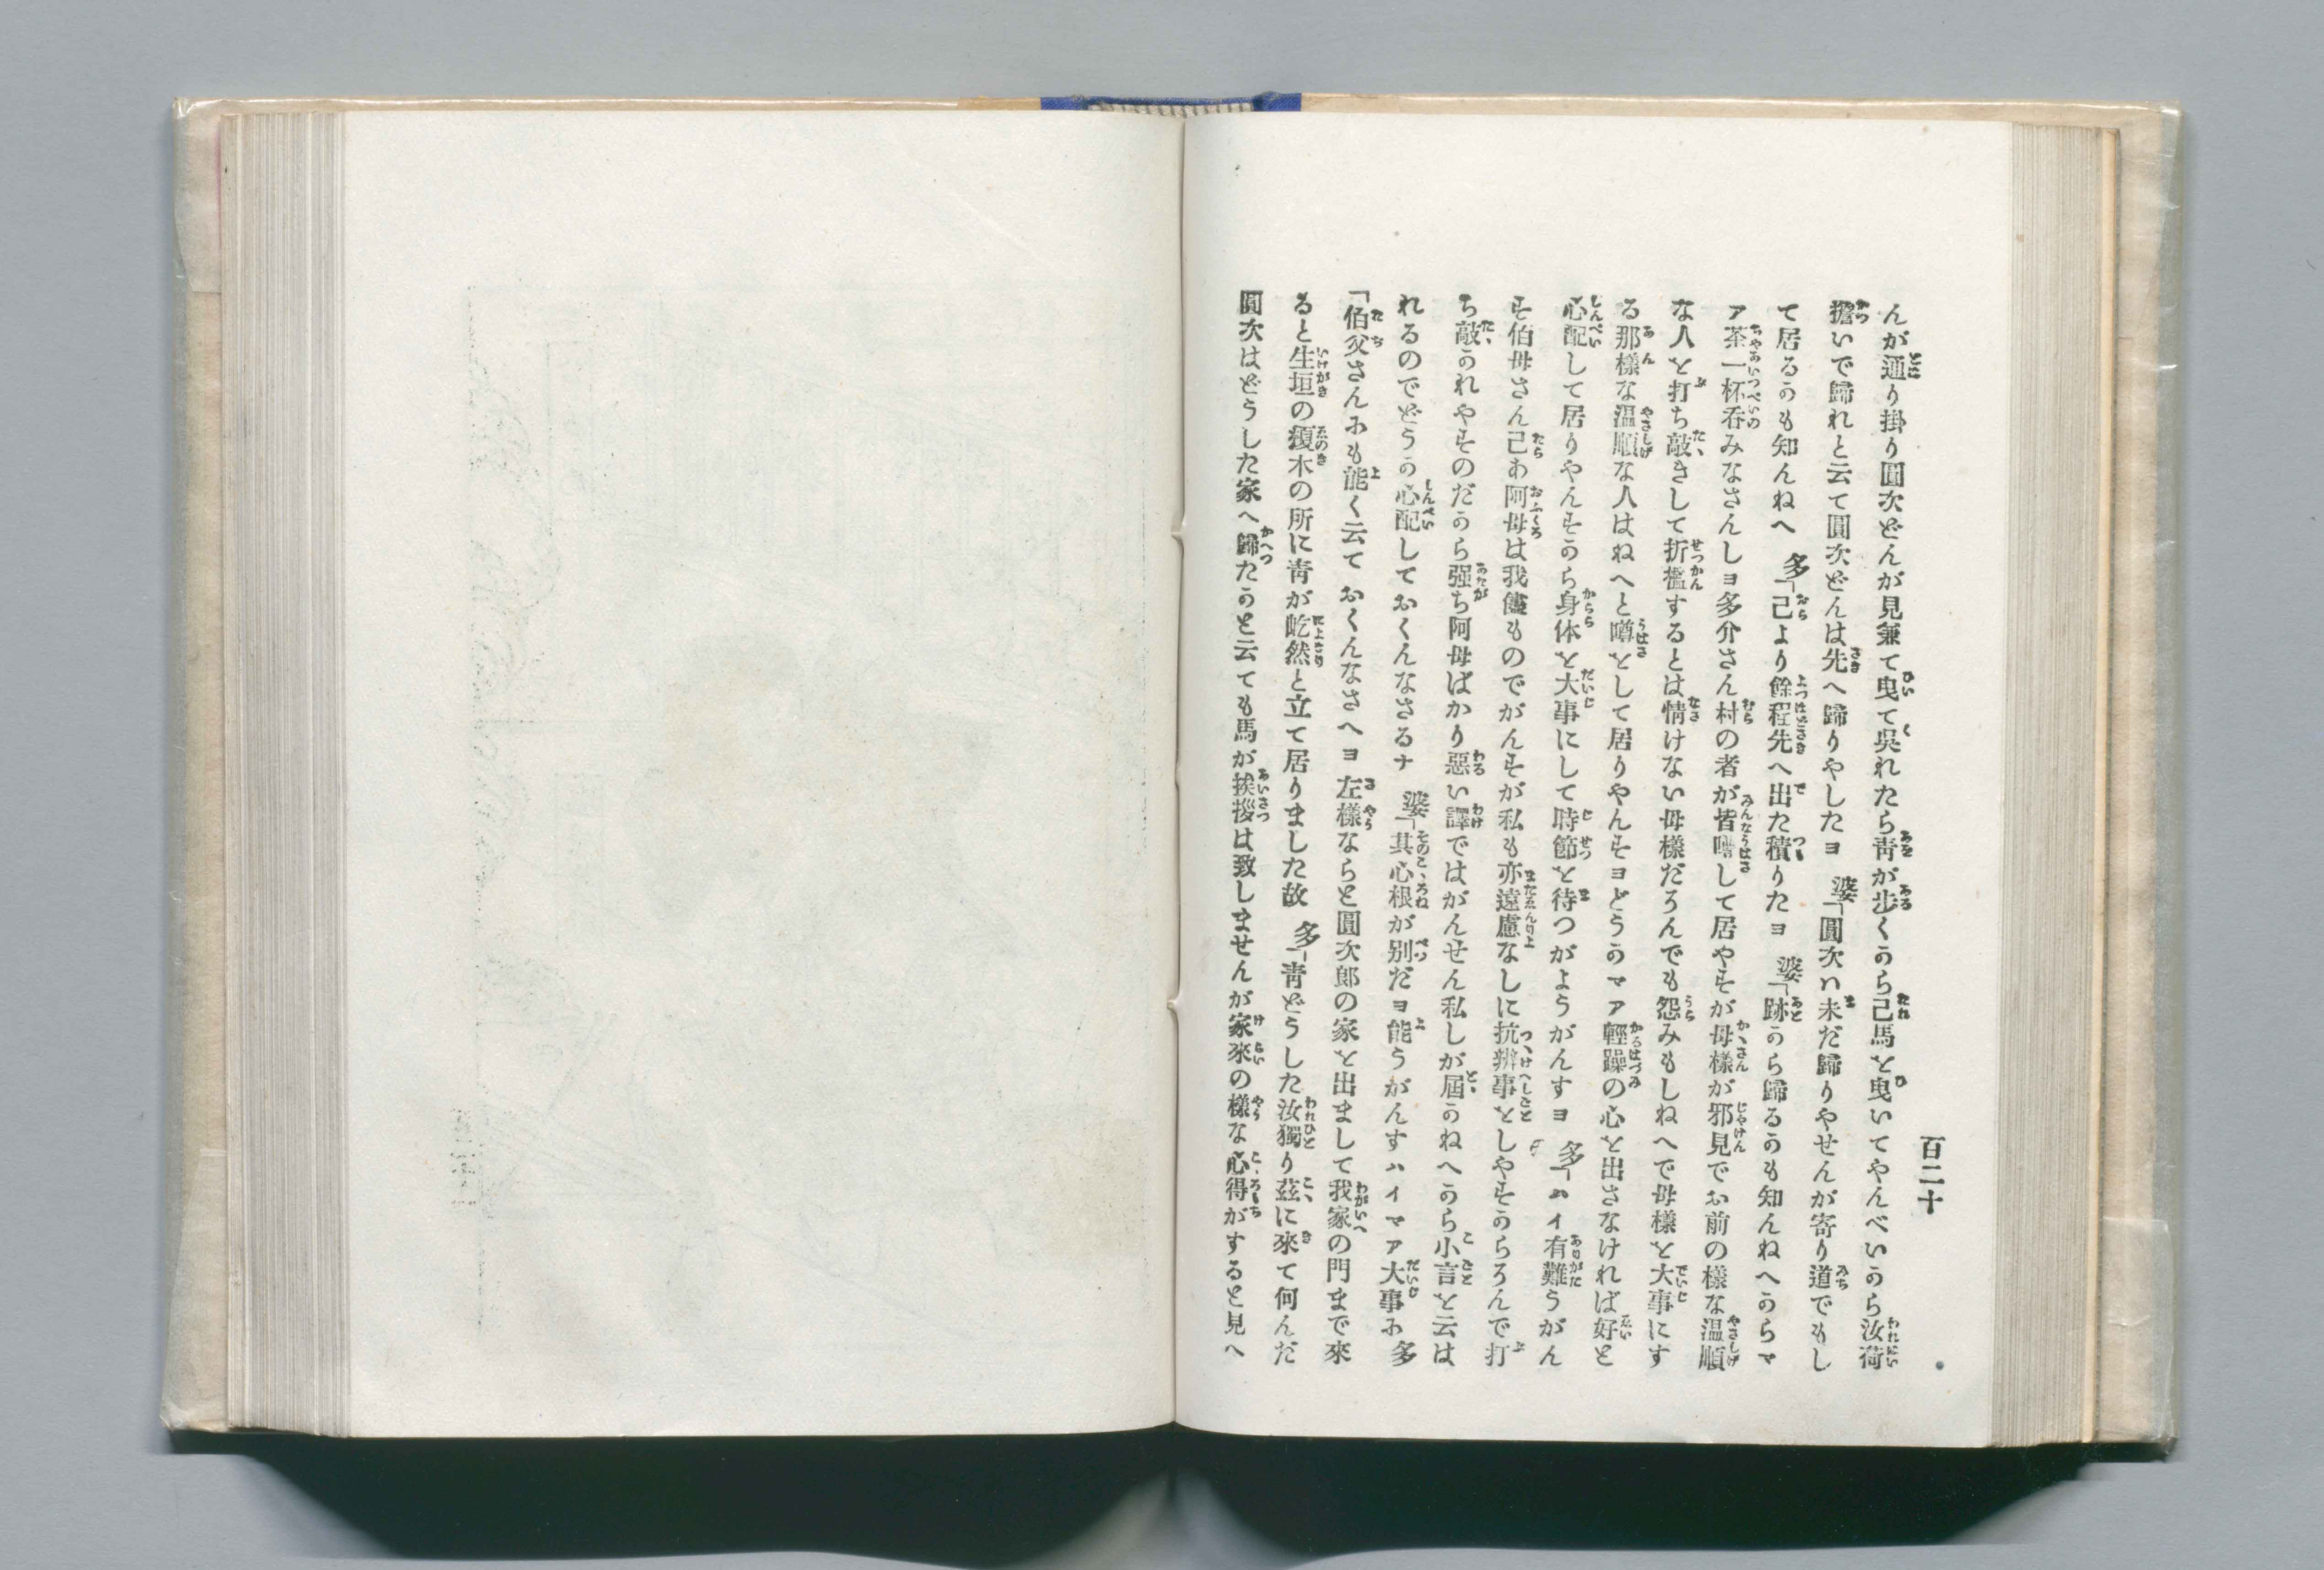 百二十
んが通り掛り圓次どんが見兼て曳て呉れたら靑が歩くから己馬を曳いてやんべいから汝荷
擔いで歸れと云て圓次どんは先へ歸りやしたヨ 婆「圓次ハ未だ歸りやせんが寄り道でもし
て居るかも知んねへ 多「己より餘程先へ出た積りたヨ 婆「跡から歸るかも知んねへからマ
ア茶一杯呑みなさんしヨ多介さん村の者が皆噂して居やすが母樣が邪見でお前の樣な温順
な人を打ち敲きして折檻するとは情けない母樣だろんでも怨みもしねへで母樣を大事にす
る那樣な温順な人はねへと噂をして居りやんすヨどうかマア輕躁の心を出さなければ好と
心配して居りやんすから身体を大事にして時節を待つがようがんすヨ 多「ハイ有難うがん
す伯母さん己わ阿母は我儘ものでがんすが私も亦遠慮なしに抗辨事をしやすからろんで打
ち敲かれやすのだから强ち阿母ばかり惡い譯ではがんせん私しが屆かねへから小言を云は
れるのでどうか心配しておくんなさるナ 婆「其心根が別だヨ能うがんすハイマア大事に 多
「伯父さんにも能く云て おくんなさへヨ 左樣ならと圓次郎の家を出まして我家の門まで來
ると生垣の榎木の所に靑が屹然と立て居りました故 多「靑どうした汝獨り茲に來て何んだ
圓次はどうした家へ歸たかと云ても馬が挨拶は致しませんが家來の樣な心得がすると見へ